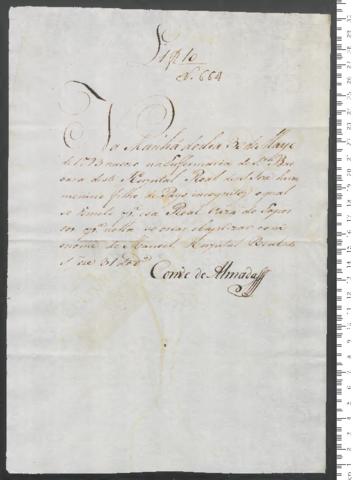 L.º 10
N.º 664
Na Manhã do dia 30 de Março
de 1793 nasceo na Enfermaria de S.ta Bar
bara deste Hospital Real de S. Jozé hum
menino filho de Pays incognitos o qual
se remete p.ª essa Real Caza de Expos
tos p.ª nella se criar e baptizar com
o nome de Manoel Hospital
31
Conde de Almada